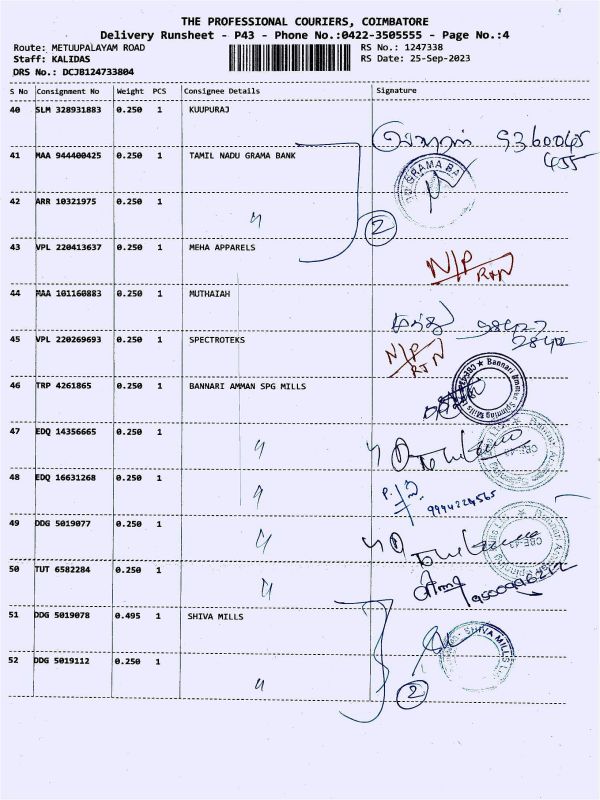 THE PROFESSIONAL COURIERS, COIMBATORE
Delivery Runsheet - P43 - Phone No.:0422-3505555 - Page No.:4
Route: METUUPALAYAM ROAD RS No.: 1247338
Staff: KALIDAS RS Date: 25-Sep-2023
DRS No.: DCJ8124733804
S No Consignment No Weight PCS Consignee Details Signature
40 SLM 328931883 0.250 1 KUUPURAJ
41 MAA 944400425 0.250 1 TAMIL NADU GRAMA BANK
GRAMA BA
42 ARR 10321975 0.250 1 〃
2
43 VPL 220413637 0.250 1 MEHA APPARELS N/P RTN
44 MAA 101160883 0.250 1 MUTHAIAH
45 VPL 220269693 0.250 1 SPECTROTEKS N/P RTN
46 TRP 4261865 0.250 1 BANNARI AMMAN SPG MILLS
47 EDQ 14356665 0.250 1 〃
48 EDQ 16631268 0.250 1 〃
49 DDG 5019077 0.250 1 〃
50 TUT 6582284 0.250 1 〃
51 DDG 5019078 0.495 1 SHIVA MILLS
SHIVA MILLS
52 DDG 5019112 0.250 1 〃
2